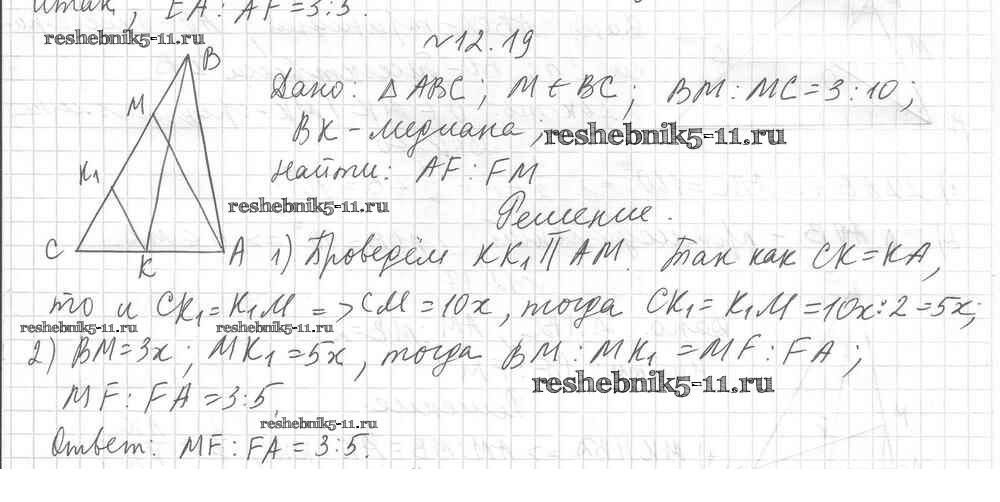 итак, EA : AF = 3:5.
reshebnik5-11.ru
№12.19
B
Дано: △ABC; M ∈ BC; BM : MC = 3 : 10;
M
BK - медиана;
reshebnik5-11.ru
K₁
Найти: AF : FM
reshebnik5-11.ru
Решение.
C
K
A
1) Проведём KK₁ || AM. Так как CK = KA,
то и CK₁ = K₁M => CM = 10x, тогда CK₁ = K₁M = 10x : 2 = 5x;
reshebnik5-11.ru
reshebnik5-11.ru
2) BM = 3x; MK₁ = 5x, тогда BM : MK₁ = MF : FA;
reshebnik5-11.ru
MF : FA = 3:5.
reshebnik5-11.ru
Ответ: MF : FA = 3:5.